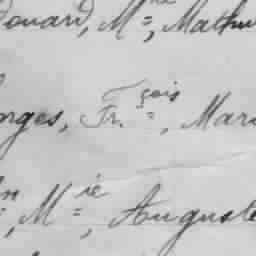 douard, M=, Mathu
orges, Fr.çois=, Mari
n=, M=ie, Auguste